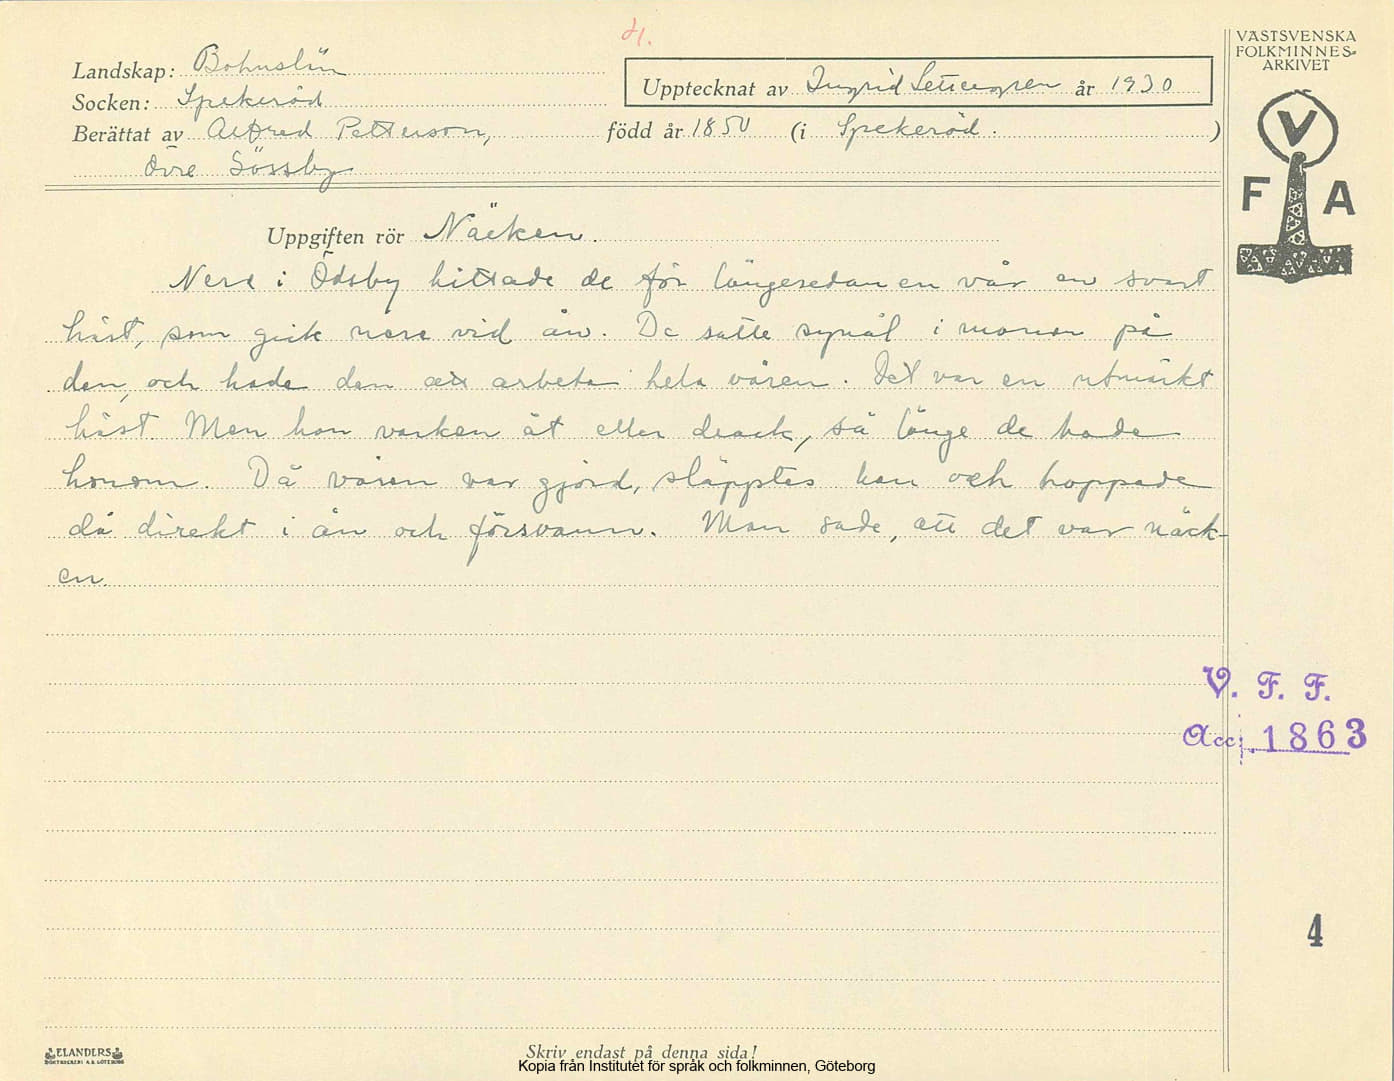 4.
VÄSTSVENSKA
FOLKMINNES-
ARKIVET
Landskap: Bohuslän
Socken: Spekeröd
Upptecknat av Ingrid år 1930
Berättat av Alfred Petterson, född år 1850 (i Spekeröd.)
Övre Sössby
V
F A
Uppgiften rör Näcken.
Nere i Ödsby hittade de för längesedan en vår en svart
häst, som gick nere vid ån. De satte synål i manen på
den, och hade den att arbeta hela våren. Det var en utmärkt
häst. Men han varken åt eller drack, så länge de hade
honom. Då våren var gjord, släpptes han och hoppade
då direkt i ån och försvann. Man sade, att det var näck-
en.
V. F. F.
Acc: 1863
4
ELANDERS
BOKTRYCKERI A.B. GÖTEBORG
Skriv endast på denna sida!
Kopia från Institutet för språk och folkminnen, Göteborg